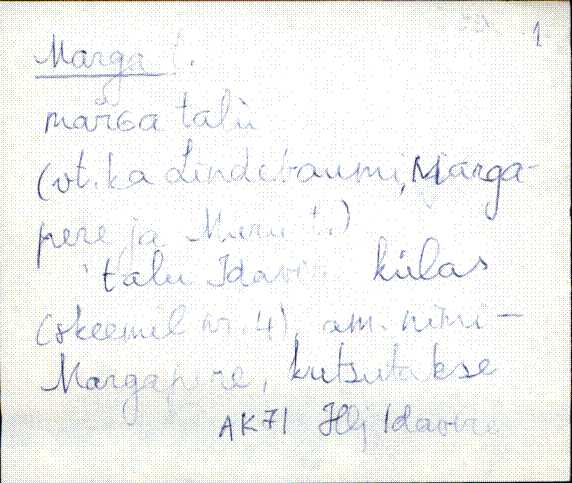 1
Marga t.
marGa talu
(vt. ka Lindebaumi, Marga-
pere ja Muru t.)
talu Idavere külas
(skeemil nr. 4), am. nimi -
Margapere, kutsutakse
AK71 Hlj Idavere